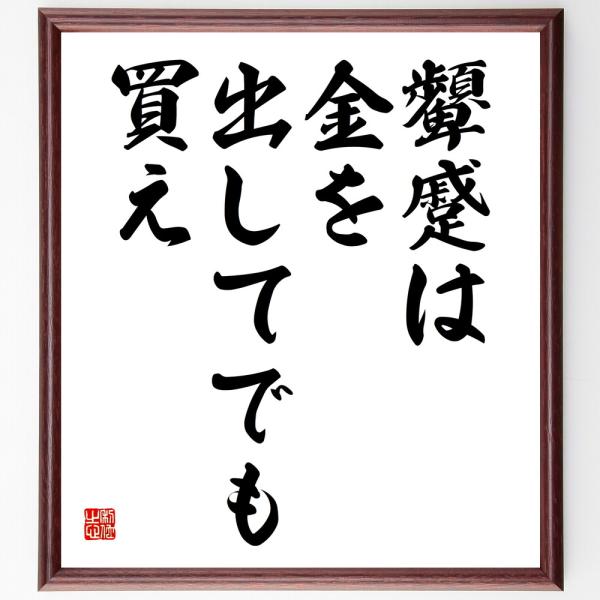 顰蹙は
金を
出してでも
買え